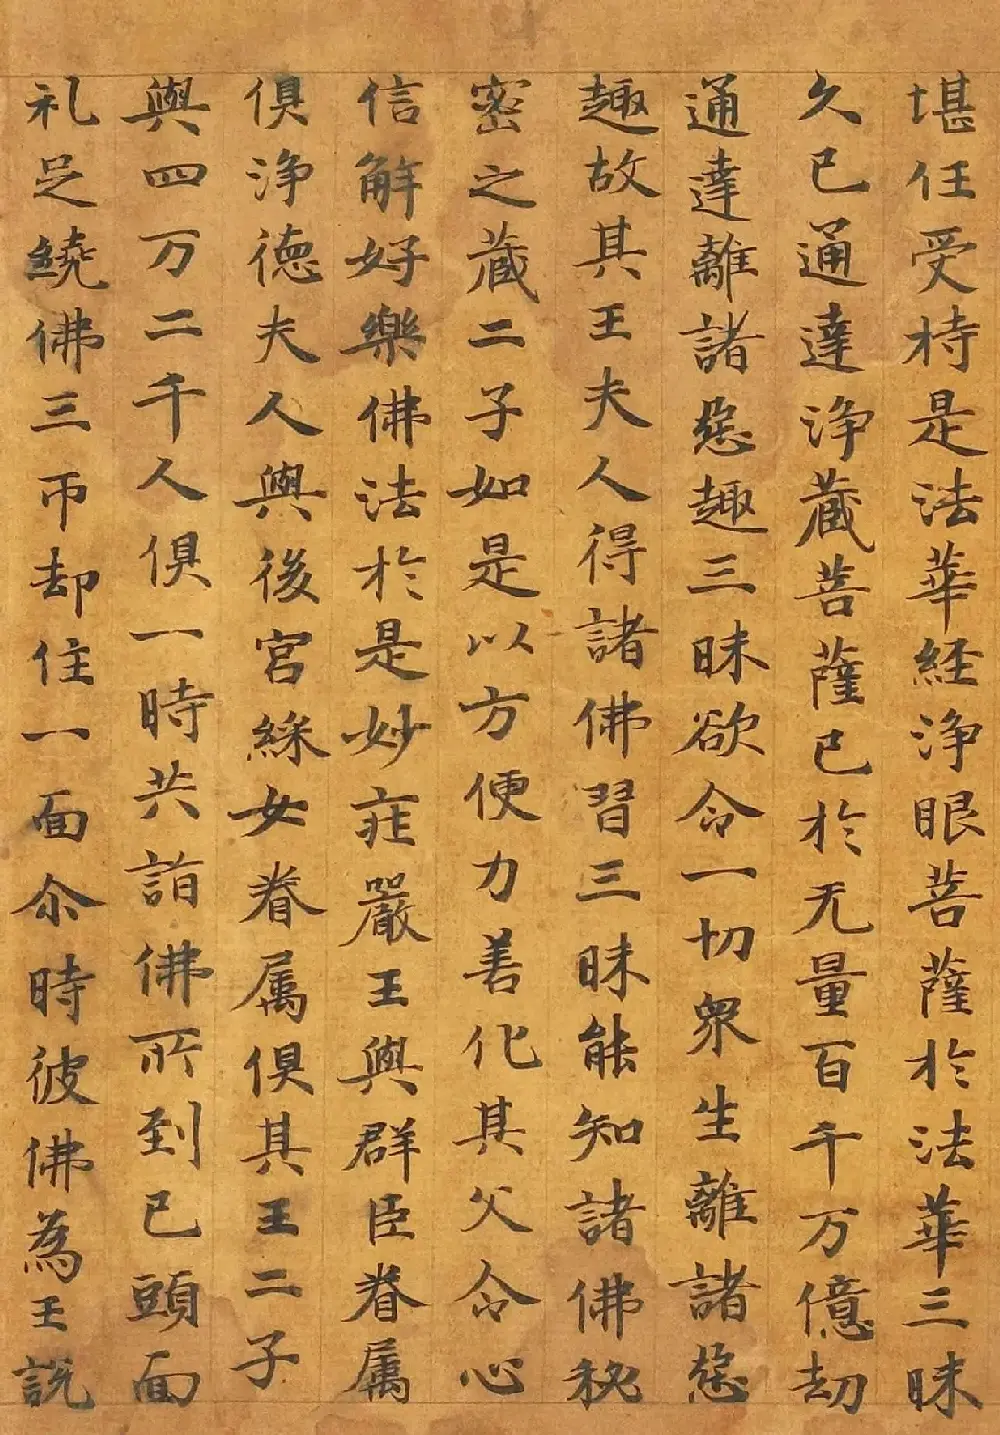 堪任受持是法華経浄眼菩薩於法華三昧
久已通達浄藏菩薩已於无量百千万億劫
通達離諸惡趣三昧欲令一切衆生離諸惡
趣故其王夫人得諸佛習三昧能知諸佛秘
密之藏二子如是以方便力善化其父令心
信解好樂佛法於是妙庄嚴王與群臣眷属
俱浄徳夫人與後宮綵女眷属俱其王二子
與四万二千人俱一時共詣佛所到已頭面
礼足繞佛三帀却住一面尒時彼佛為王説